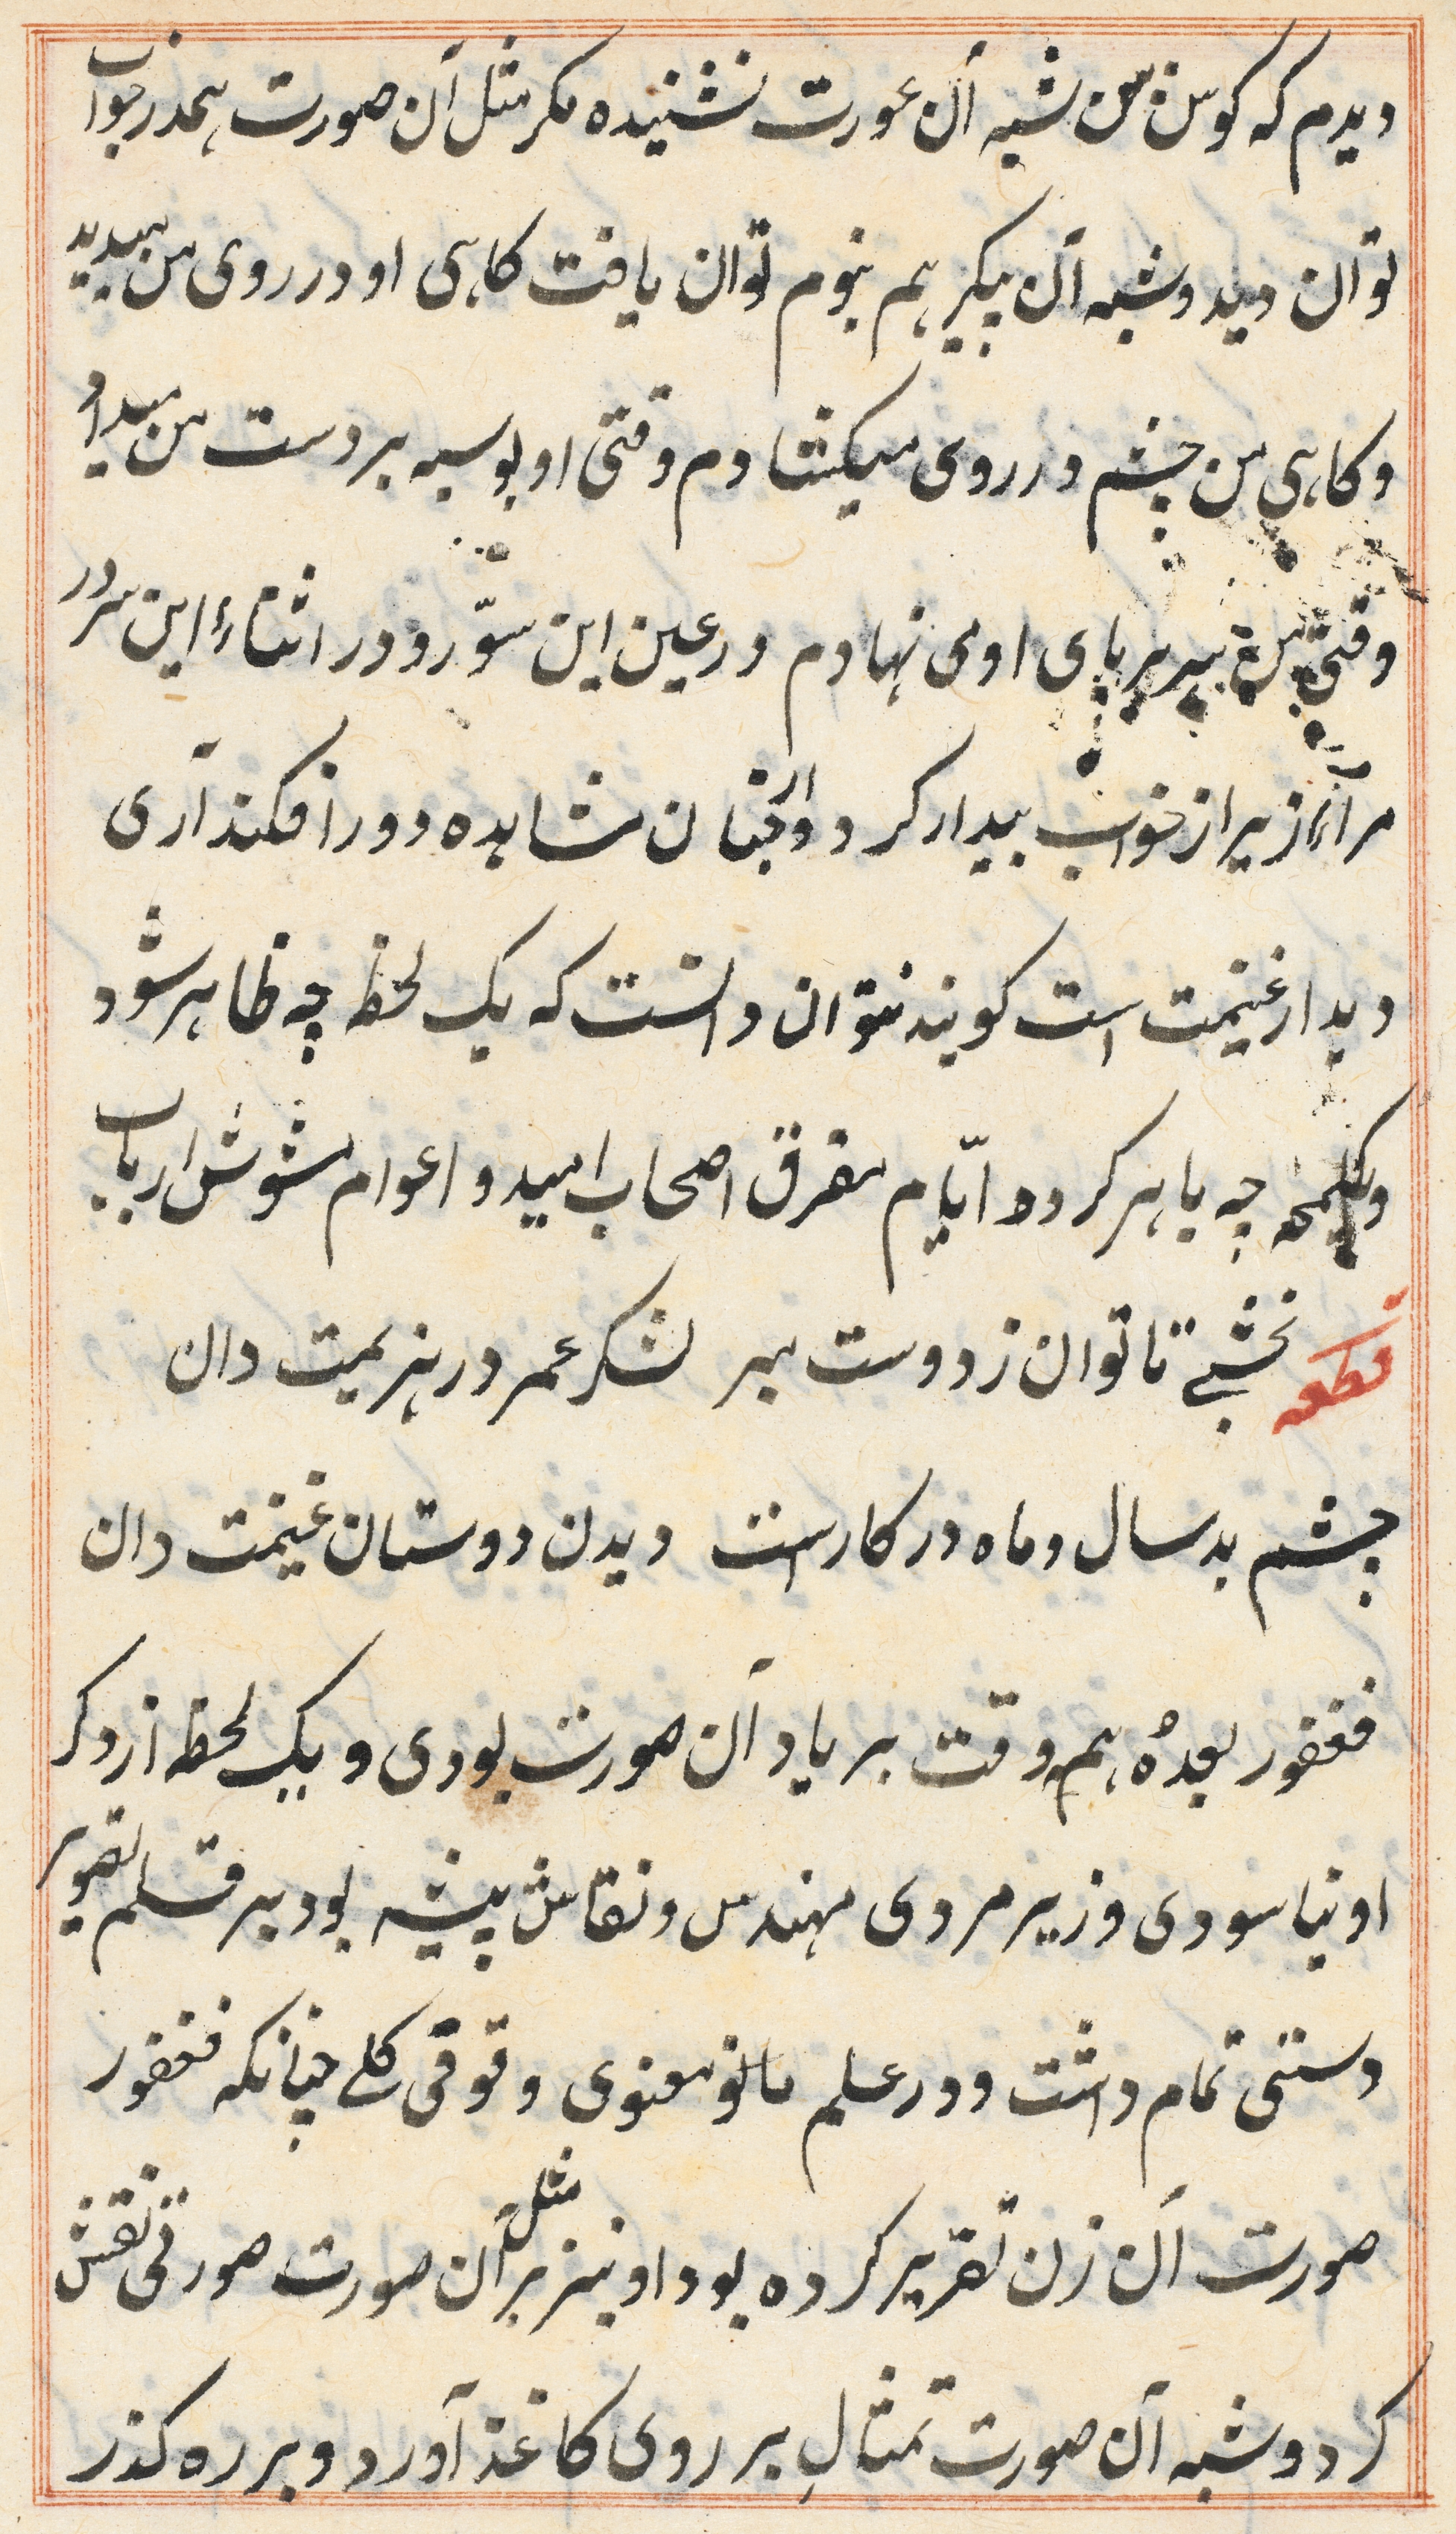 دیدم که کوس من شبه آن عورت نشنیده مکر مثل آن صورت همدر خواب
توان دید و شبه آن پیکر هم بنوم توان یافت کاهی او در روی من میدید
و کاهی من چشم در روی میکشادم وقتی او بوسه بر دست من میداد
وقتی من بسر بر پای او می نهادم در عین این سوّر و در اثناء این سرور
مرا از خواب بیدار کرد و از چنان مشاهده دور افکند آری
دیدار غنیمت است کویند نتوان دانست که یک لحظ چه ظاهر شود
و بیک لمحه چه باهر کردد ایّام مفرق اصحاب امید و اعوام مشوش ارباب
قطعه نخشبے تا توان ز دوست مبر لشکر عمر در هزیمت دان
چشم بد سال و ماه در کار است دیدن دوستان غنیمت دان
فغفور بعدهٔ هم وقت بر یاد آن صورت بودی و یک لحظه از ذکر
او نیاسودی وزیر مردی مهندس و نقاش پیشه بود بر قلم تصویر
دستی تمام داشت و در علم مانو معنوی وقوفی کلے چنانکه فغفور
صورت آن زن تقریر کرده بود او نیز بر مثل آن صورت صورتی نقش
کرد و شبه آن صورت تمثال بر روی کاغذ آورد و بر ره کذر